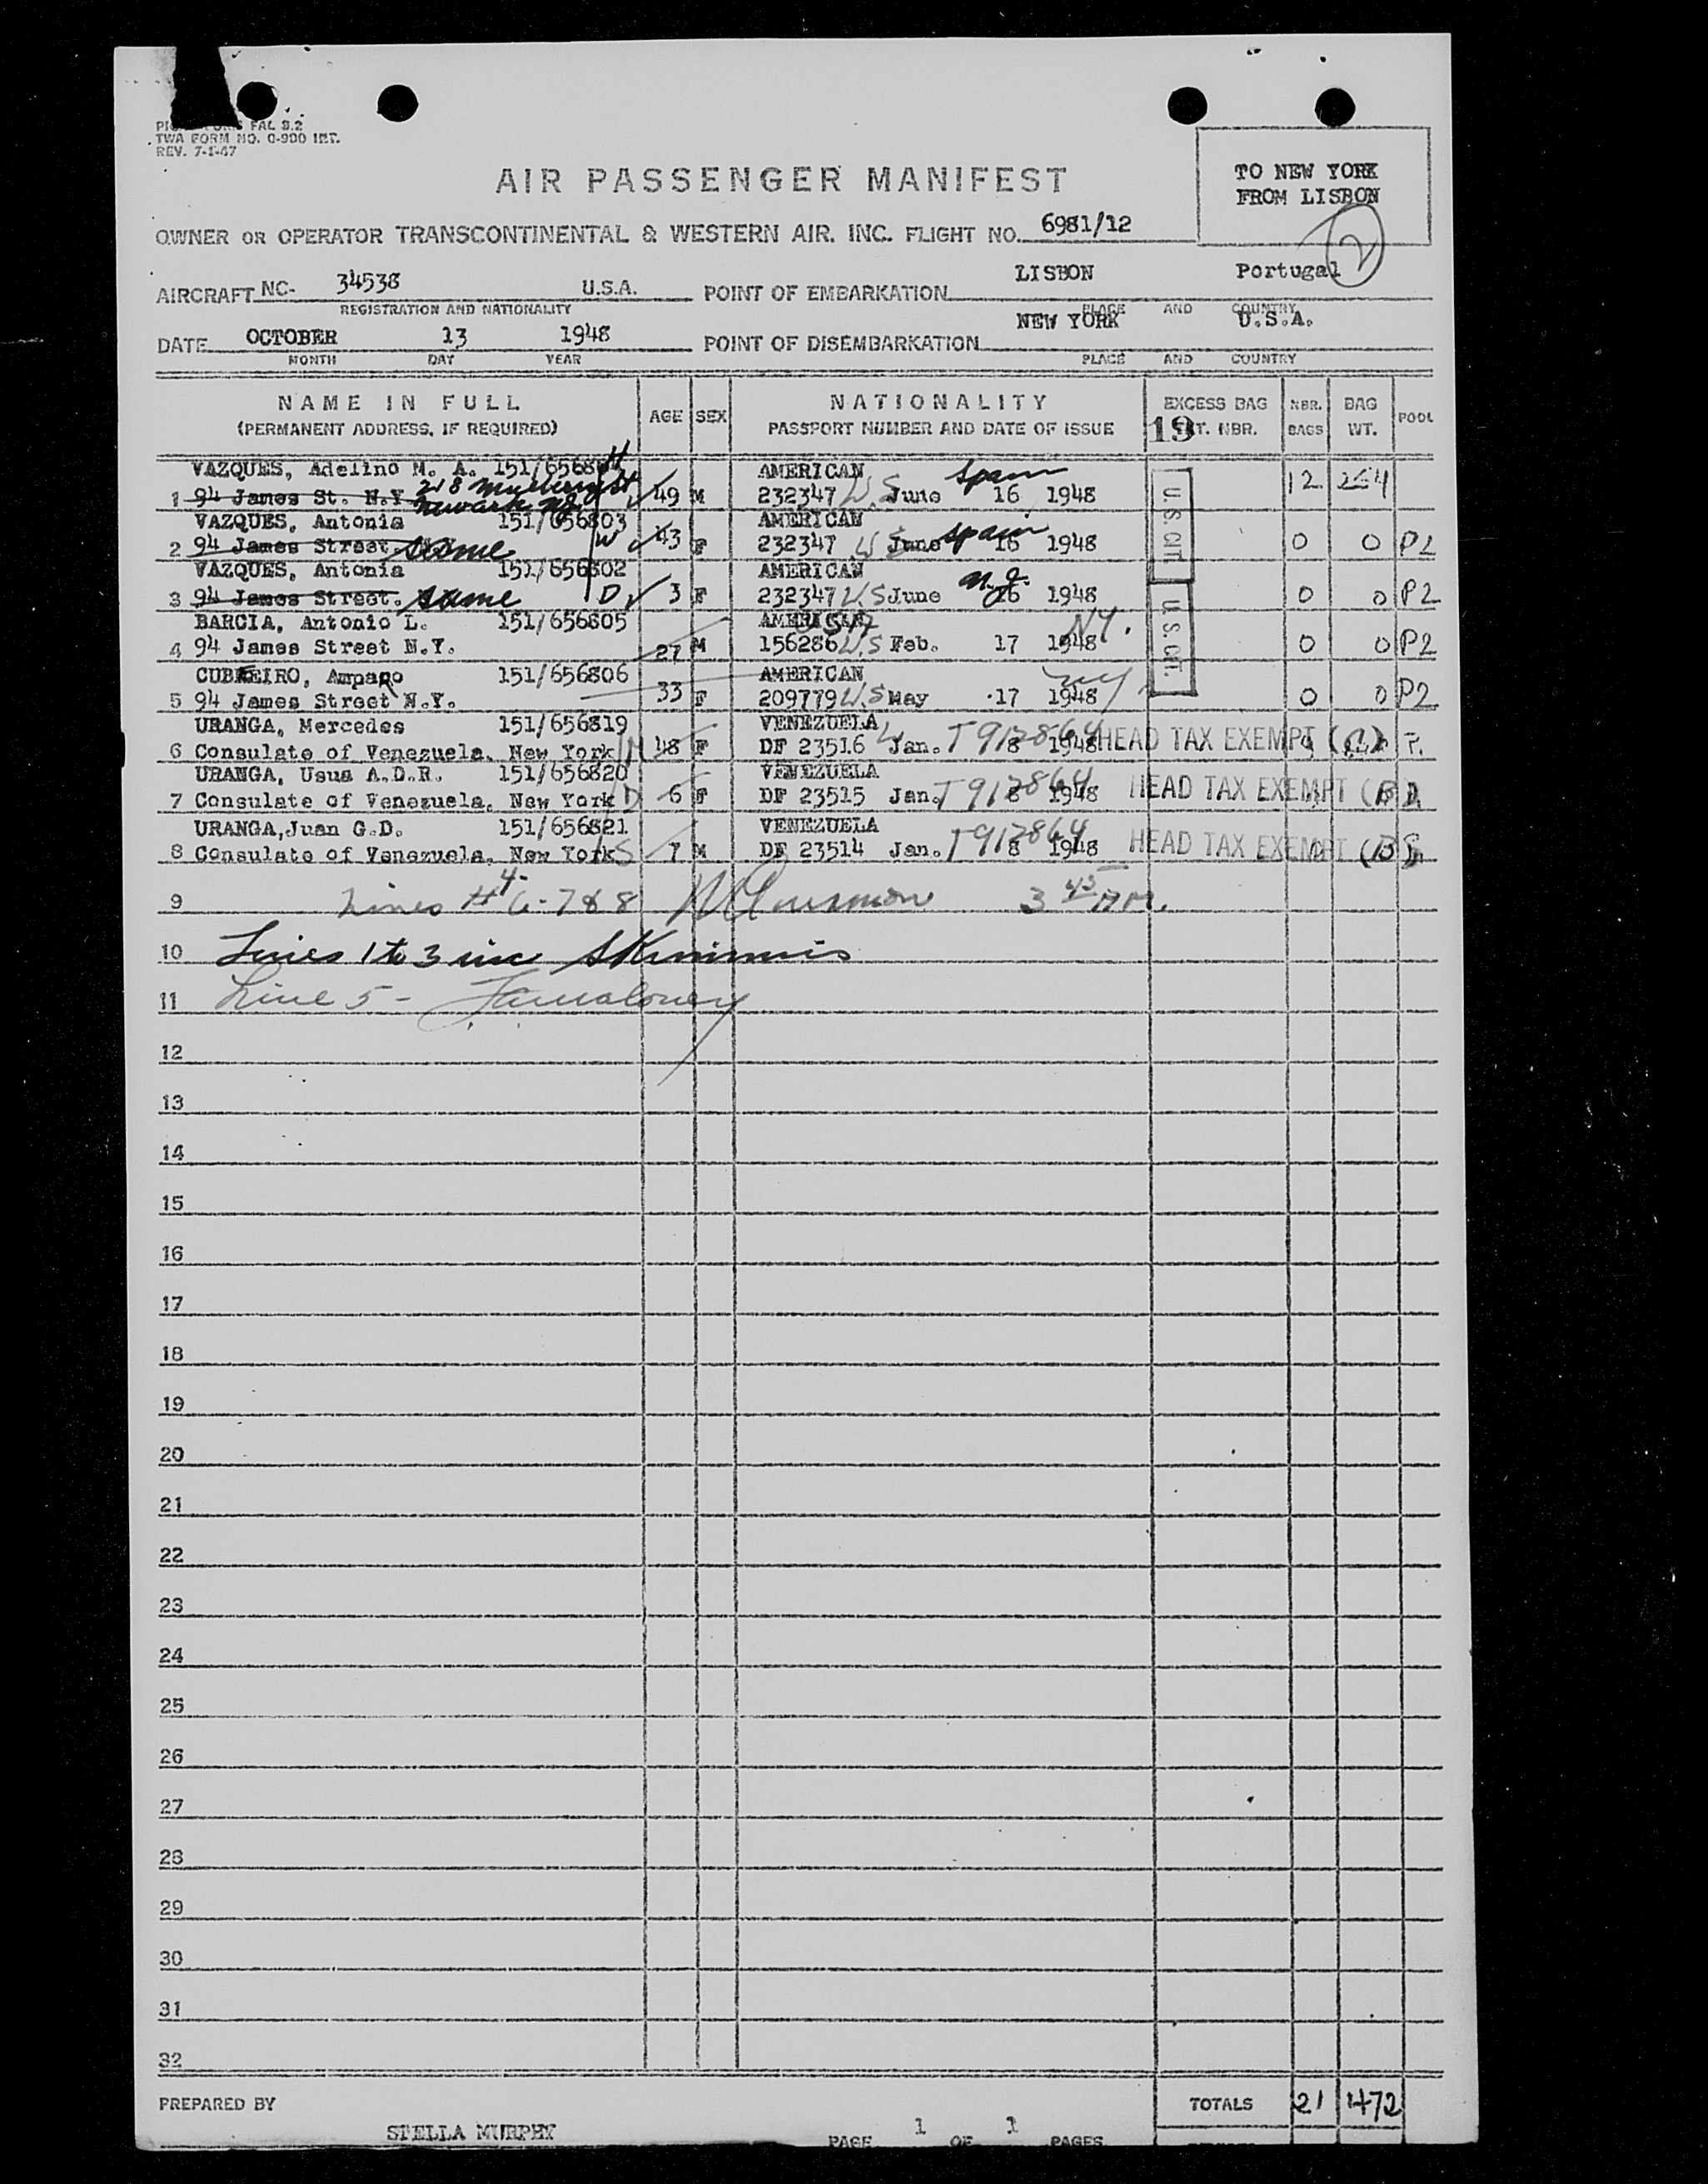 FAL 9.2
TWA FORM NO. 0-900 INT.
REV. 7-1-47
AIR PASSENGER MANIFEST
TO NEW YORK
FROM LISBON
2
OWNER OR OPERATOR TRANSCONTINENTAL & WESTERN AIR. INC. FLIGHT NO. 6981/12
AIRCRAFT NC- 34538 U.S.A. POINT OF EMBARKATION LISBON Portugal
REGISTRATION AND NATIONALITY PLACE AND COUNTRY
DATE OCTOBER 13 1948 POINT OF DISEMBARKATION NEW YORK U.S.A.
MONTH DAY YEAR PLACE AND COUNTRY
NAME IN FULL AGE SEX NATIONALITY EXCESS BAG NBR. BAG POOL
(PERMANENT ADDRESS, IF REQUIRED) PASSPORT NUMBER AND DATE OF ISSUE 19 T. NBR. BAGS WT.
VAZQUES, Adelino M. A. 151/656804 H AMERICAN Spain
1 94 James St. N.Y. 218 Mulberry St Newark NJ. 49 M 232347 U.S June 16 1948 U.S. CIT. 12 254
VAZQUES, Antonia 151/656803 AMERICAN Spain
2 94 James Street same W 43 F 232347 U.S June 16 1948 0 0 P2
VAZQUES, Antonia 151/656802 AMERICAN N.J.
3 94 James Street. same D 3 F 232347 U.S June 16 1948 0 0 P2
BARCIA, Antonio L. 151/656805 AMERICAN USA NY.
4 94 James Street N.Y. 27 M 156286 U.S Feb. 17 1948 U.S. CIT. 0 0 P2
CUBEEIRO, Amparo 151/656806 AMERICAN NY
5 94 James Street N.Y. 33 F 209779 U.S May 17 1948 0 0 P2
URANGA, Mercedes 151/656819 VENEZUELA T912864
6 Consulate of Venezuela. New York M 48 F DF 23516 Jan. 8 1948 HEAD TAX EXEMPT
URANGA, Usua A.D.R. 151/656820 VENEZUELA T912864
7 Consulate of Venezuela. New York D 6 F DF 23515 Jan. 8 1948 HEAD TAX EXEMPT (B)
URANGA, Juan G.D. 151/656821 VENEZUELA T912864
8 Consulate of Venezuela. New York S 7 M DF 23514 Jan. 8 1948 HEAD TAX EXEMPT (B)
9 Lines # 4- 6-7&8 3 45 AM.
10 Lines 1 to 3 inc
11 Line 5 -
12
13
14
15
16
17
18
19
20
21
22
23
24
25
26
27
28
29
30
31
32
PREPARED BY TOTALS 21 472
STELLA MURPHY PAGE 1 OF 1 PAGES